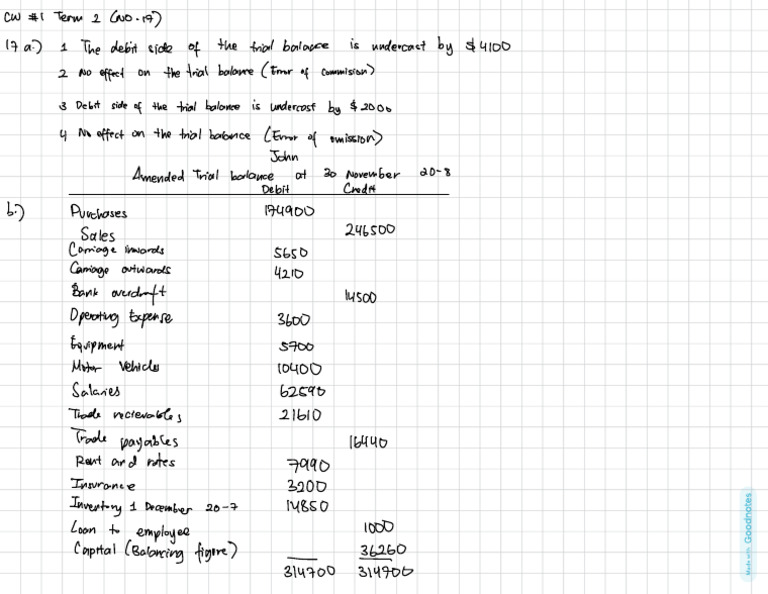 CW #1 Term 2 (NO.17)
17 a.) 1 The debit side of the trial balance is undercast by $4100
2 No effect on the trial balance (Error of commision)
3 Debit side of the trial balance is undercast by $2000
4 No effect on the trial balance (Error of omission)
John
Amended Trial balance at 30 November 20-8
Debit Credit
b.) Purchases 174900
Sales 246500
Carriage inwards 5650
Carriage outwards 4210
Bank overdraft 14500
Operating Expense 3600
Equipment 5700
Motor Vehicles 10400
Salaries 62590
Trade recievables 21610
Trade payables 16440
Rent and rates 7990
Insurance 3200
Inventory 1 December 20-7 14850
Loan to employee 1000
Capital (Balancing figure) 36260
314700 314700
Made with Goodnotes